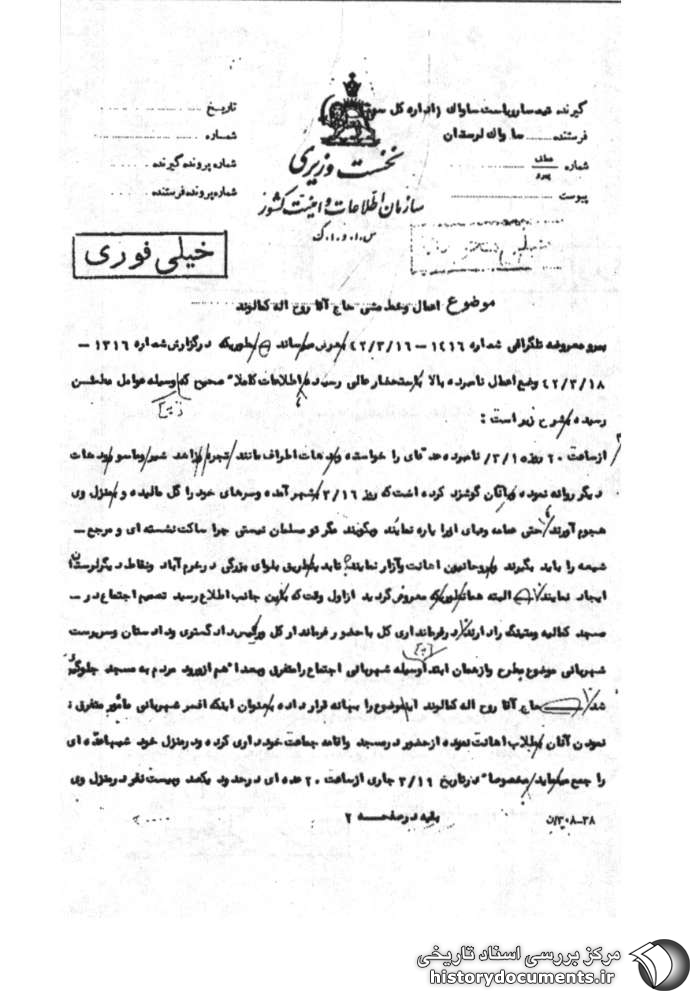 گیرنده تیمسار ریاست ساواک (اداره کل سوم)
فرستنده ساواک لرستان
شماره عطف پیرو
پیوست
تاریخ
شماره
شماره پرونده گیرنده
شماره پرونده فرستنده
نخست وزیری
سازمان اطلاعات و امنیت کشور
س.ا.و.ا.ک
خیلی فوری
موضوع اعمال و خط مشی حاج آقا روح اله کمالوند
پیرو معروضه تلگرافی شماره ۱۴۱۶ - ۴۲/۳/۱۶ بعرض میرساند بطوریکه در گزارش شماره ۱۳۱۶ -
۴۲/۳/۱۸ وضع اعمال نامبرده بالا باستحضار عالی رسیده اطلاعات کاملا صحیح که وسیله عوامل مطمئن
رسیده بشرح زیر است :
از ساعت ۲۰ روز ۳/۱۵ نامبرده عده ای را خواسته و بدهات اطراف مانند
دیگر روانه نموده و بآنان گوشزد کرده است که روز ۳/۱۶ بشهر آمده و سرهای خود را گل مالیده و بمنزل وی
هجوم آورند حتی عمامه و عبای او را پاره نمایند و بگویند مگر تو مسلمان نیستی چرا ساکت نشسته ای و مرجع -
شیعه را باید بگیرند و بروحانیون اهانت و آزار نمایند تا بدینطریق بلوای بزرگی در خرم آباد و نقاط دیگر لرستان
ایجاد نمایند البته همانطوریکه معروض گردید از اول وقت که باین جانب اطلاع رسید تصمیم اجتماع در -
مسجد کمالیه و میتینگ را دارند در فرمانداری کل با حضور فرماندار کل و رئیس دادگستری و دادستان و سرپرست
شهربانی موضوع مطرح و از همان ابتدا وسیله شهربانی اجتماع را متفرق و بعدا هم از ورود مردم به مسجد جلوگیری
شد حاج آقا روح اله کمالوند این موضوع را بهانه قرار داده بعنوان اینکه افسر شهربانی مأمور متفرق
نمودن آنان بطلاب اهانت نموده از حضور در مسجد و اقامه جماعت خودداری کرده و در منزل خود شبها عده ای
را جمع مینماید مخصوصا در تاریخ ۳/۱۶ جاری از ساعت ۲۰ عده ای در حدود یکصد و بیست نفر در منزل وی
بقیه در صفحه ۲
مرکز بررسی اسناد تاریخی
historydocuments.ir